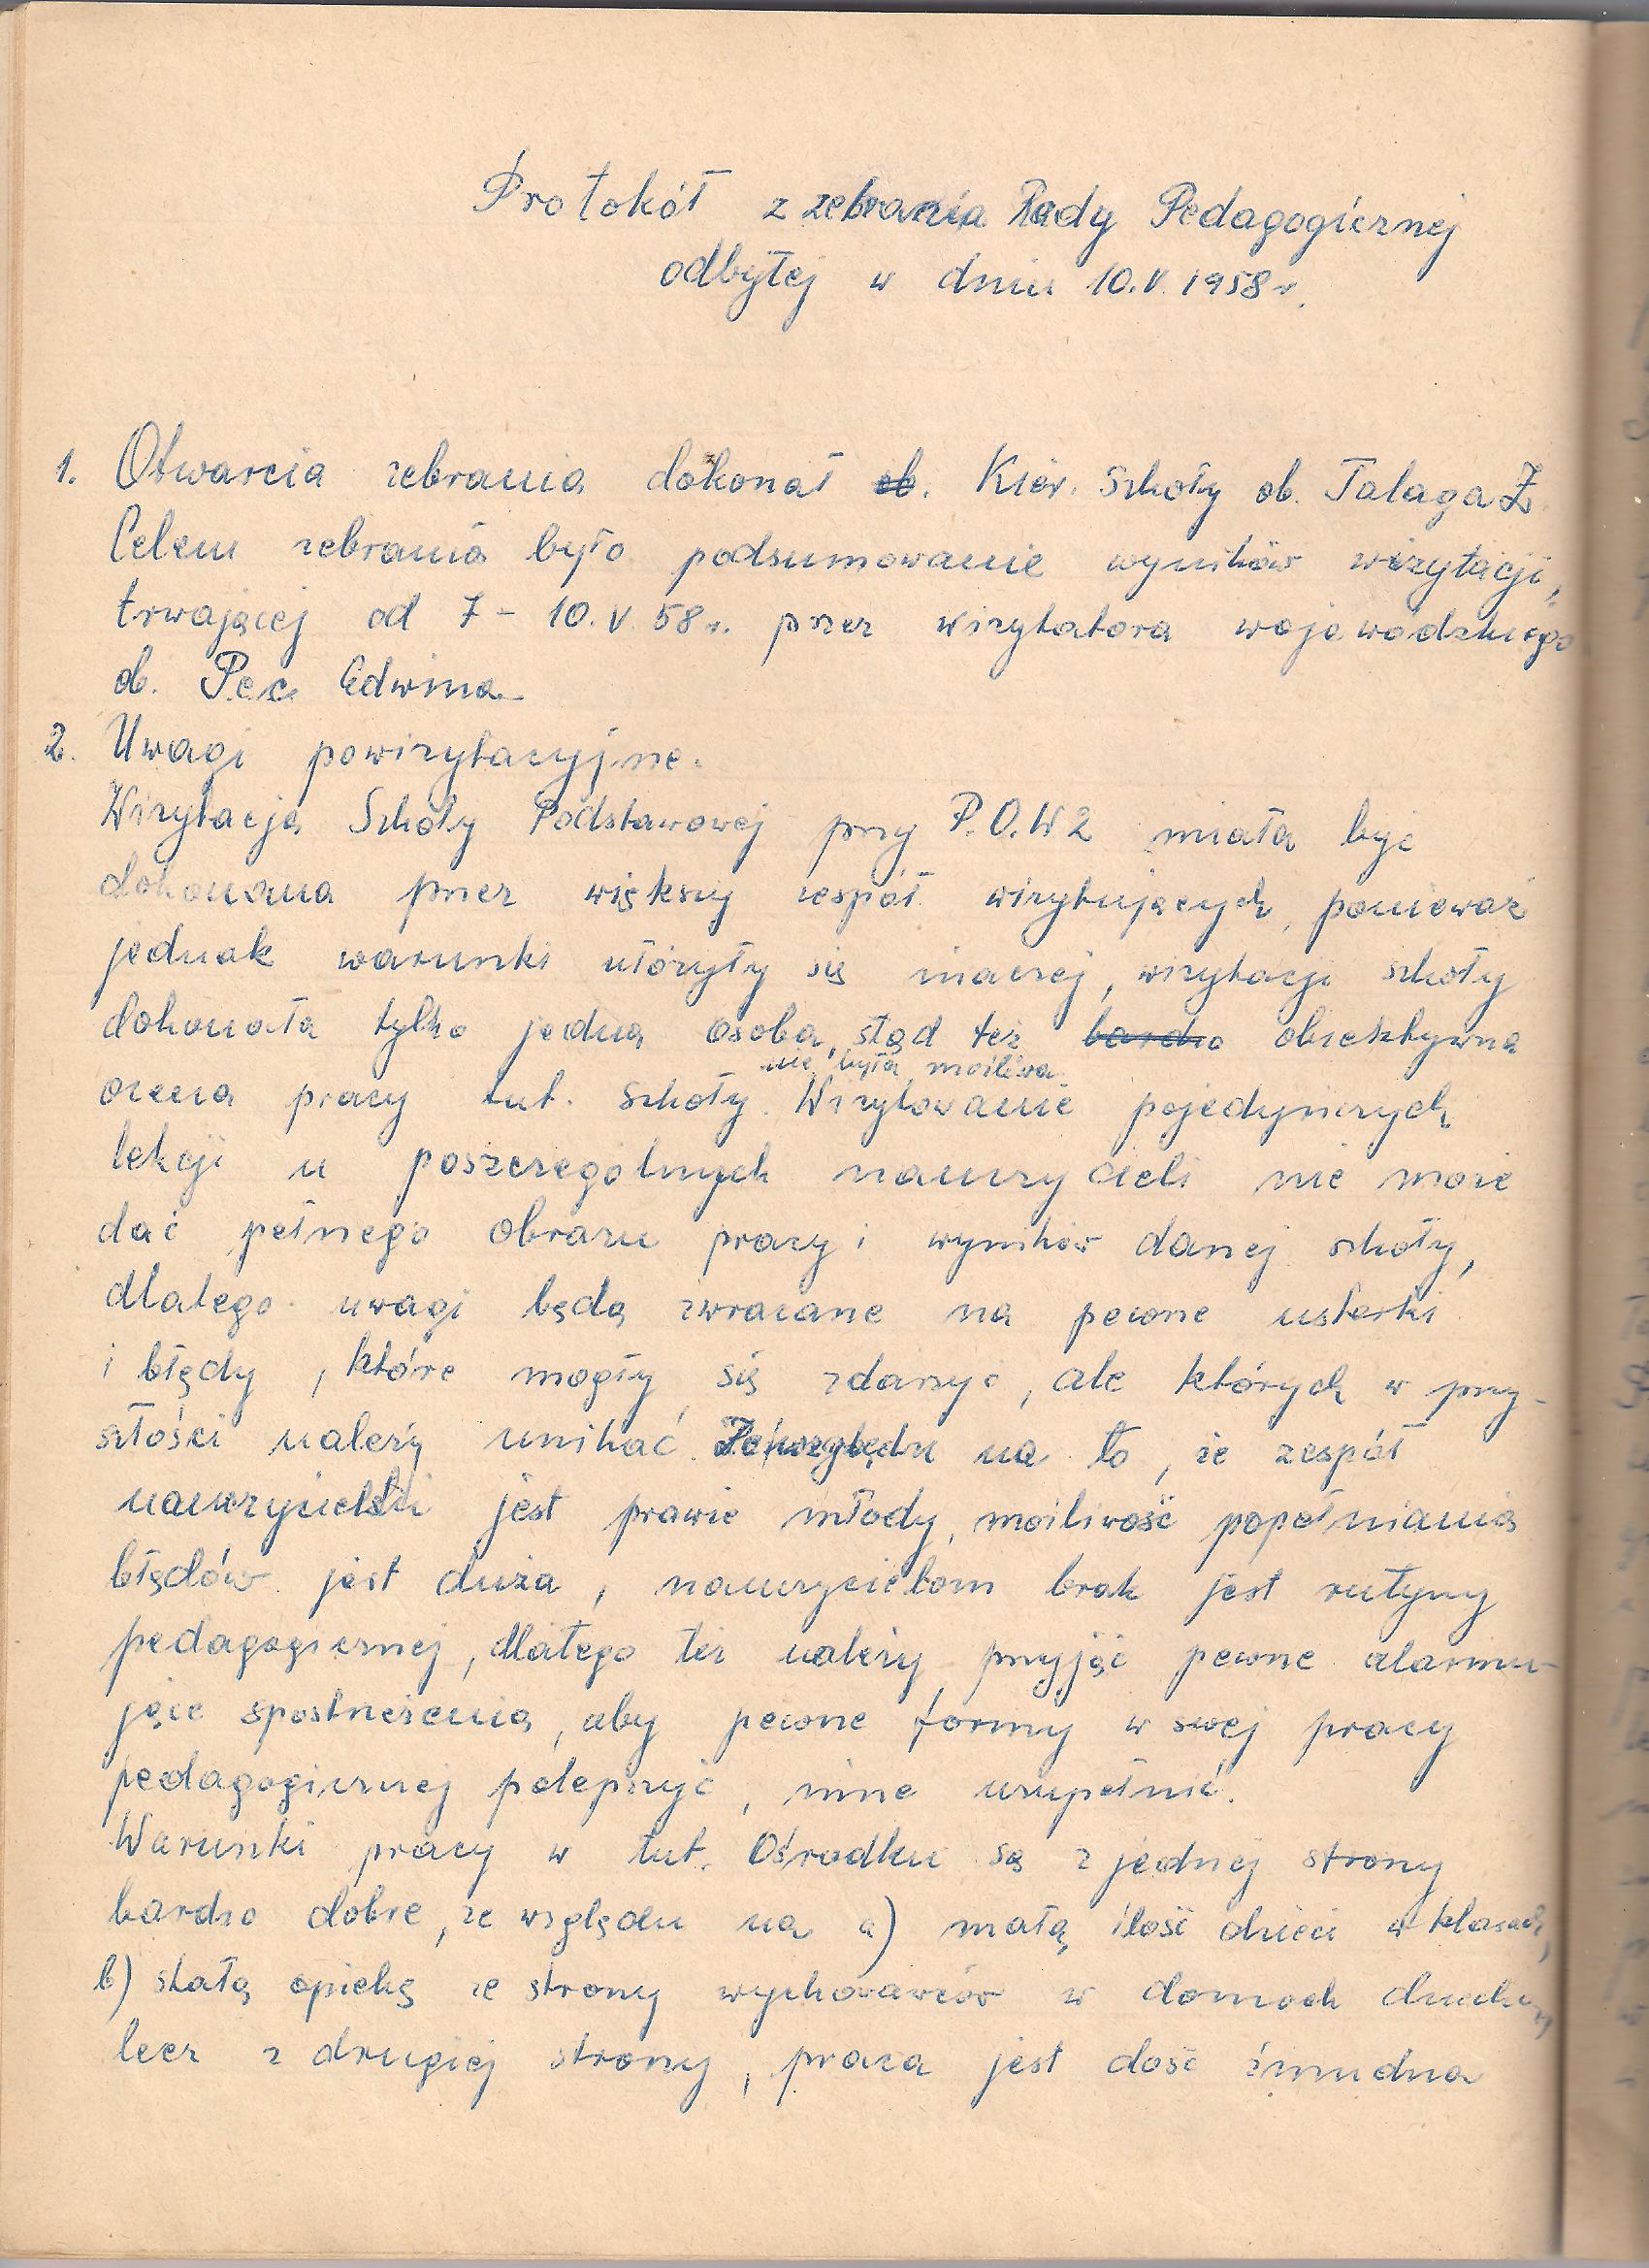 Protokół z zebrania Rady Pedagogicznej
odbyłej w dniu 10.V.1958 r.
1. Otwarcia zebrania dokonał ob. Kier. Szkoły ob. Talaga Z.
Celem zebrania było podsumowanie wyników wizytacji,
trwającej od 7 - 10.V.58 r. przez wizytatora wojewódzkiego
ob. Pec Edwina.
2. Uwagi powizytacyjne.
Wizytacja Szkoły Podstawowej przy P.O.W 2 miała być
dokonana przez większy zespół wizytujących, ponieważ
jednak warunki ułożyły się inaczej, wizytacji szkoły
dokonała tylko jedna osoba, stąd też bardzo obiektywna
nie była możliwa
ocena pracy tut. Szkoły. Wizytowanie pojedynczych
lekcji u poszczególnych nauczycieli nie może
dać pełnego obrazu pracy i wyników danej szkoły,
dlatego uwagi będą zwracane na pewne usterki
i błędy, które mogły się zdarzyć, ale których w przy-
szłości należy unikać. Ze względu na to, że zespół
nauczycielski jest prawie młody, możliwość popełniania
błędów jest duża, nauczycielom brak jest rutyny
pedagogicznej, dlatego też należy przyjąć pewne alarmu-
jące spostrzeżenia, aby pewne formy w swej pracy
pedagogicznej polepszyć, inne uzupełnić.
Warunki pracy w tut. Ośrodku są z jednej strony
bardzo dobre, ze względu na a) małą ilość dzieci w klasach,
b) stałą opiekę ze strony wychowawców w domach
lecz z drugiej strony, praca jest dość żmudna